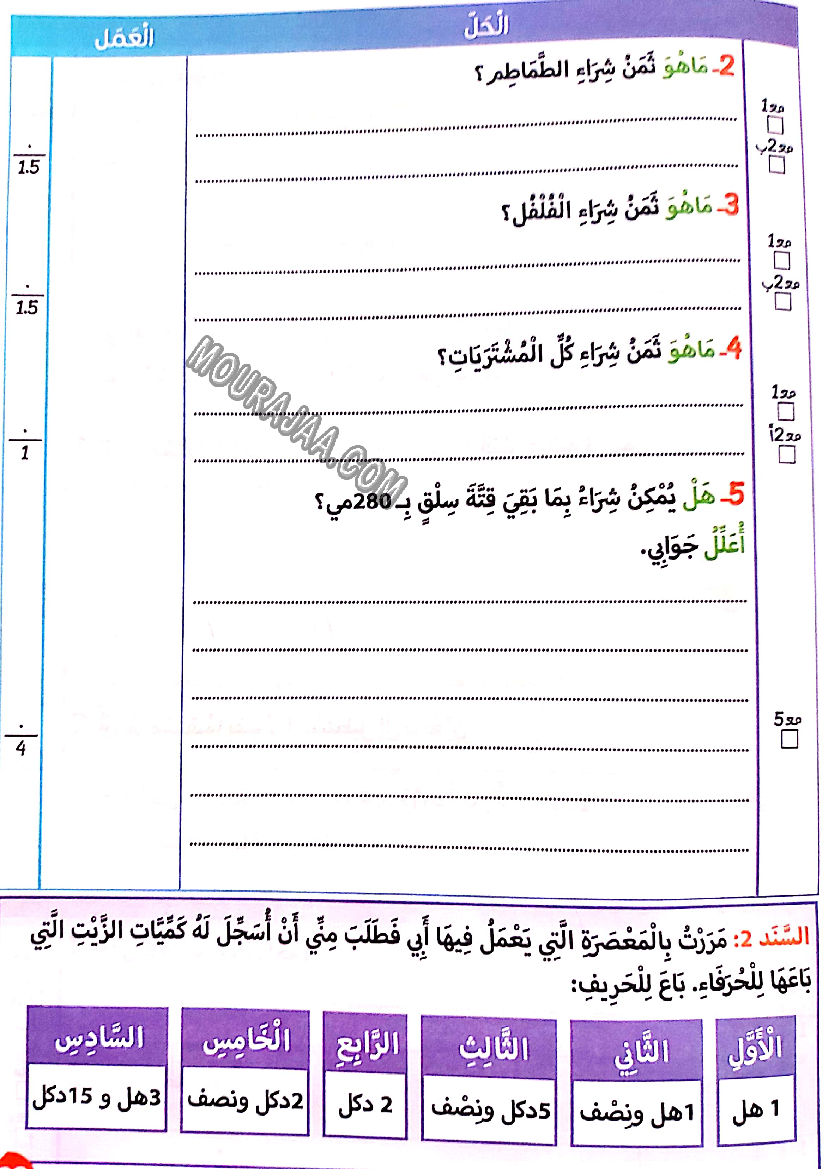 الْحَلّ
الْعَمَل
2- مَاهُوَ ثَمَنُ شِرَاءِ الطَّمَاطِمِ؟
مع1
مع2ب
1.5
3- مَاهُوَ ثَمَنُ شِرَاءِ الْفُلْفُل؟
مع1
مع2ب
1.5
4- مَاهُوَ ثَمَنُ شِرَاءِ كُلِّ الْمُشْتَرَيَاتِ؟
مع1
مع2أ
1
MOURAJAA.COM
5- هَلْ يُمْكِنُ شِرَاءُ بِمَا بَقِيَ قِتَّةَ سِلْقٍ بِـ 280مي؟
أُعَلِّلُ جَوَابِي.
مع5
4
السَّنَد 2: مَرَرْتُ بِالْمَعْصَرَةِ الَّتِي يَعْمَلُ فِيهَا أَبِي فَطَلَبَ مِنِّي أَنْ أُسَجِّلَ لَهُ كَمِّيَّاتِ الزَّيْتِ الَّتِي
بَاعَهَا لِلْحُرَفَاءِ. بَاعَ لِلْحَرِيفِ:
الْأَوَّلِ الثَّانِي الثَّالِثِ الرَّابِعِ الْخَامِسِ السَّادِسِ
1 هل 1هل ونِصْف 5دكل ونِصْف 2 دكل 2دكل ونصف 3هل و 15دكل